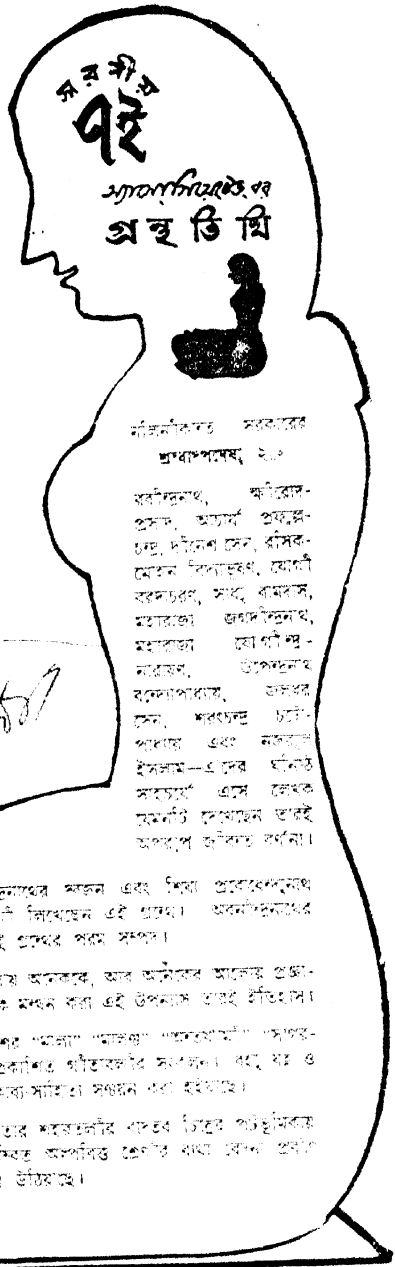 স্মরণীয়
৭ই
অ্যাসোসিয়েটেড-এর
গ্রন্থতিথি
নলিনীকান্ত সরকারের
শ্রদ্ধাস্পদেষু,
রবীন্দ্রনাথ, ক্ষীরোদ-
প্রসাদ, আচার্য প্রফুল্ল-
চন্দ্র, দীনেশ সেন, রসিক-
মোহন বিদ্যাভূষণ, যোগী
বরদাচরণ, সাধু রামদাস,
মহারাজা জগদীন্দ্রনাথ,
মহারাজা যোগীন্দ্র-
নারায়ণ, উপেন্দ্রনাথ
বন্দ্যোপাধ্যায়, জলধর
সেন, শরৎচন্দ্র চট্টো-
পাধ্যায় এবং নজরুল
ইসলাম—এঁদের ঘনিষ্ঠ
সাহচর্যে এসে লেখক
যেমনটি দেখেছেন তারই
অপরূপ জীবন্ত বর্ণনা।
ন্দ্রনাথের স্বজন এবং শিষ্য প্রবোধেন্দুনাথ
লিখেছেন এই গ্রন্থে। অবনীন্দ্রনাথের
গ্রন্থের পরম সম্পদ।
অনেককে, আর অনেকের আলোয় প্রজ্ঞা-
মন্থন করা এই উপন্যাস তারই ইতিহাস।
"মালা" "মালঞ্চ" "অন্তর্যামী" "সাগর-
প্রকাশিত গীতাবলীর সংকলন। বহু যত্ন ও
কাব্য-সাহিত্য সঞ্চয়ন করা হইয়াছে।
শহরতলীর বাস্তব চিত্রের পটভূমিকায়
অল্পবিত্ত শ্রেণীর ব্যথা বেদনা
উঠিয়াছে।